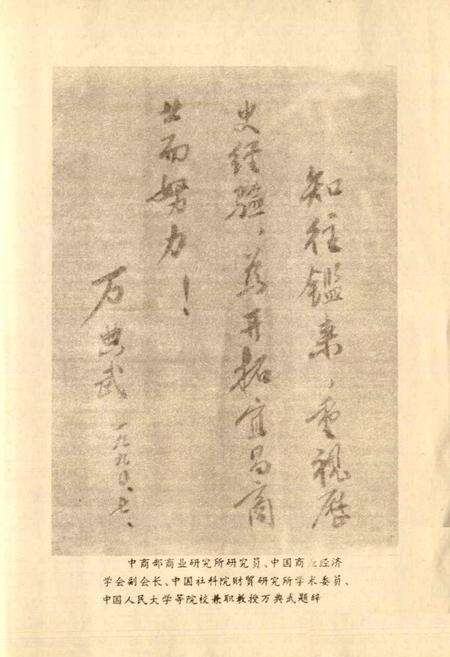 知往鉴来，重视历
史经验，为开拓宜昌商
业而努力！
万典武
一九九〇、七、
中商部商业研究所研究员、中国商业经济
学会副会长、中国社科院财贸研究所学术委员、
中国人民大学等院校兼职教授万典武题辞